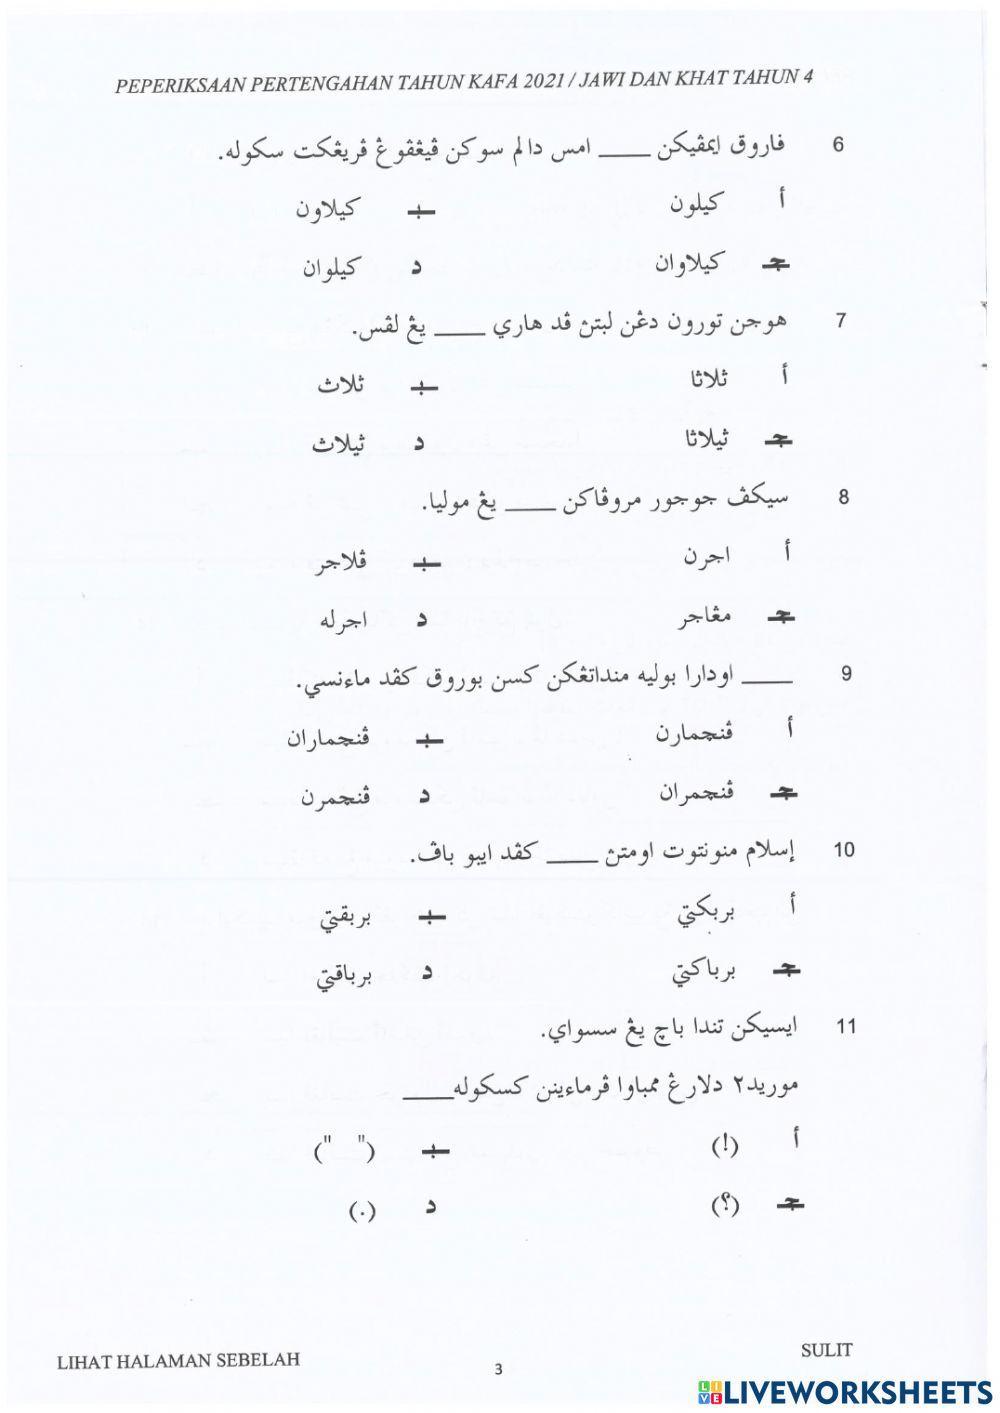 PEPERIKSAAN PERTENGAHAN TAHUN KAFA 2021 / JAWI DAN KHAT TAHUN 4
6 فاروق ايمڤيكن ____ امس دالم سوكن ڤيڠڤوڠ ڤريڠكت سكوله.
أ كيلون ب كيلاون
ج كيلاوان د كيلوان
7 هوجن تورون دڠن لبتڽ ڤد هاري ____ يڠ لڤس.
أ ثلاثا ب ثلاث
ج ثيلاثا د ثيلاث
8 سيكڤ جوجور مروڤاكن ____ يڠ موليا.
أ اجرن ب ڤلاجر
ج مڠاجر د اجرله
9 ____ اودارا بوليه منداتڠكن كسن بوروق كڤد ماءنسي.
أ ڤنچمارن ب ڤنچماران
ج ڤنچمران د ڤنچمرن
10 إسلام منونتوت اومتڽ ____ كڤد ايبو باڤ.
أ بربكتي ب بربقتي
ج برباكتي د برباقتي
11 ايسيكن تندا باچ يڠ سسواي.
موريد٢ دلارڠ ممباوا ڤرماءينن كسكوله____
أ (!) ب (" ")
ج (؟) د (.)
LIHAT HALAMAN SEBELAH
3
SULIT
LIVEWORKSHEETS